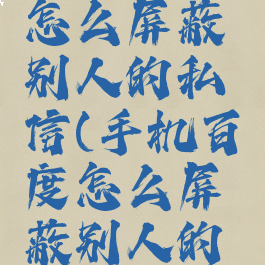 怎么屏蔽
别人的私
信(手机百
度怎么屏
蔽别人的